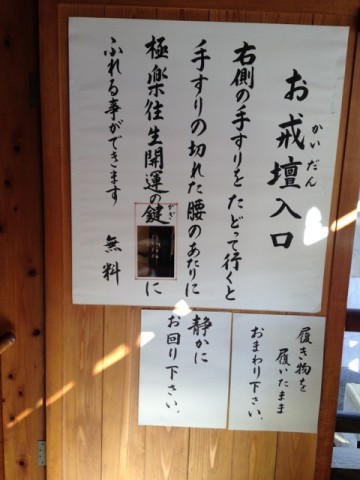 お戒壇入口
かいだん
右側の手すりをたどって行くと
手すりの切れた腰のあたりに
極楽往生開運の鍵に
かぎ
ふれる事ができます 無料
履き物を
履いたまま
おまわり下さい。
静かに
お回り下さい。